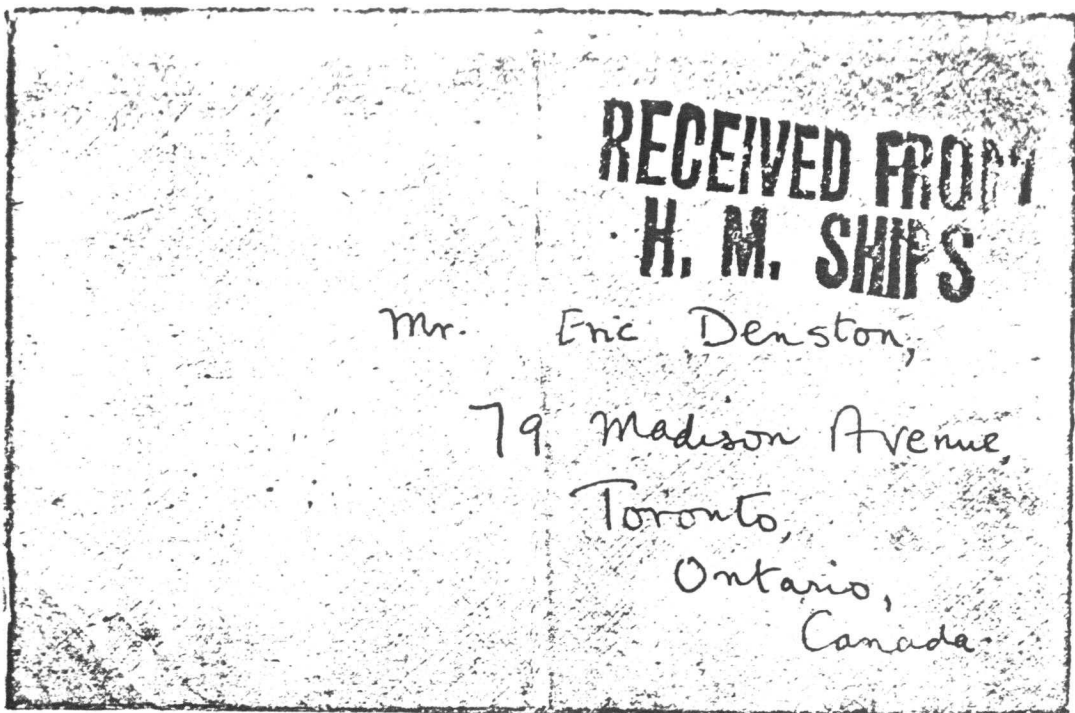 RECEIVED FROM
H. M. SHIPS
Mr. Eric Denston,
79 Madison Avenue,
Toronto,
Ontario,
Canada